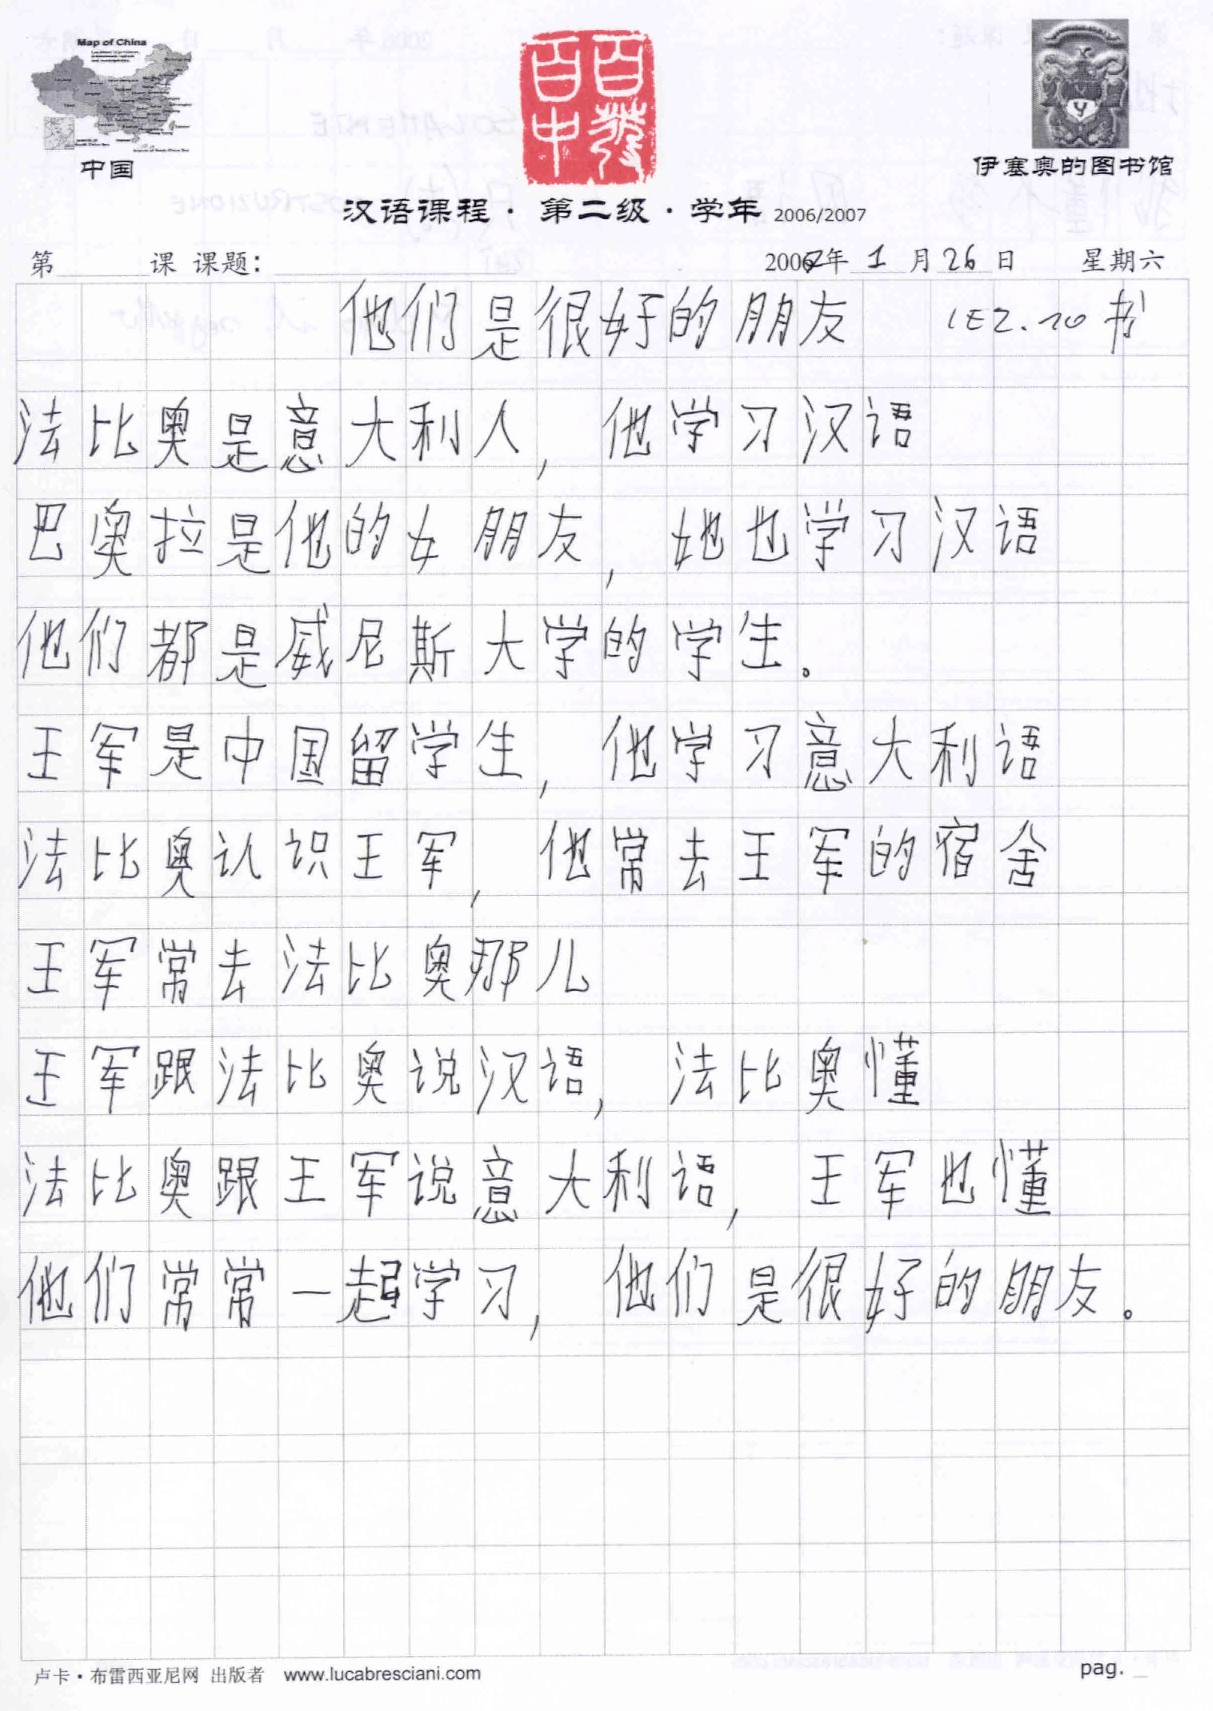 Map of China
中国
百发百中
伊塞奥的图书馆
汉语课程·第二级·学年 2006/2007
第 课 课题： 2007年 1 月 26 日 星期六
他们是很好的朋友 LEZ. 10 书
法比奥是意大利人，他学习汉语
巴奥拉是他的女朋友，她也学习汉语
他们都是威尼斯大学的学生。
王军是中国留学生，他学习意大利语
法比奥认识王军，他常去王军的宿舍
王军常去法比奥那儿
王军跟法比奥说汉语，法比奥懂
法比奥跟王军说意大利语，王军也懂
他们常常一起学习，他们是很好的朋友。
卢卡·布雷西亚尼网 出版者 www.lucabresciani.com pag.